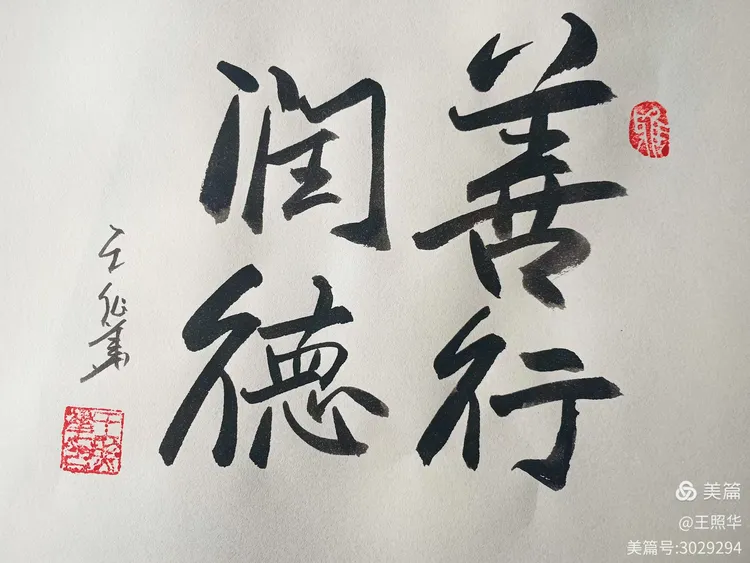 善行
润德
美篇
@王照华
美篇号:3029294